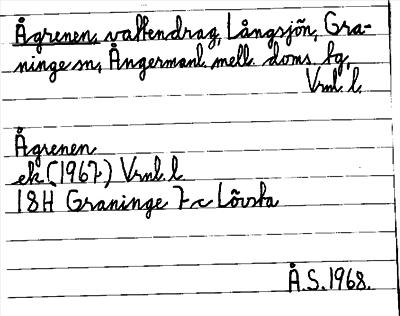 Ågrenen, vattendrag, Långsjön, Gra-
ninge sn, Ångermanl. mell. doms. hg,
Vrnl. l.
Ågrenen
ek (1967) Vrnl. l
18H Graninge 7 c Lövsta
Å.S. 1968.